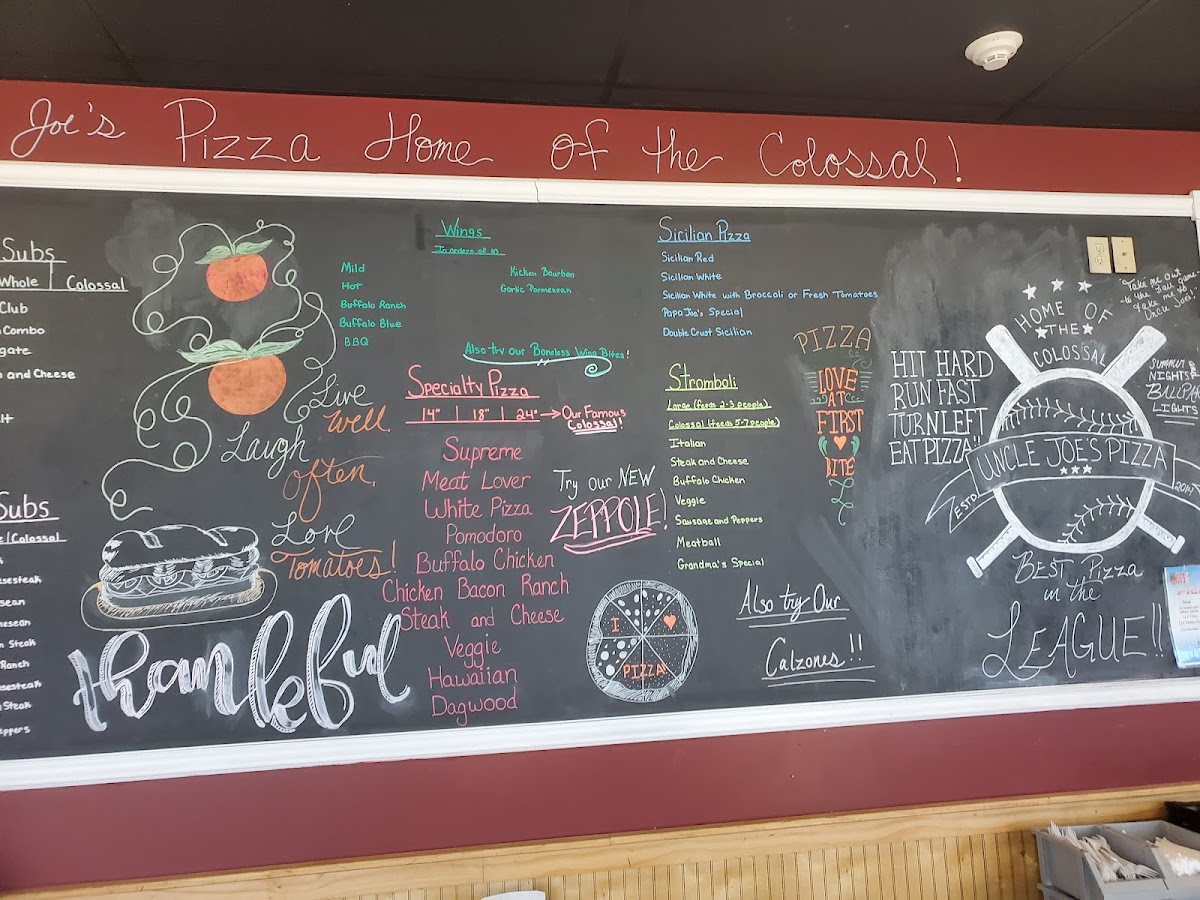 Joe's Pizza Home of the Colossal!
Subs
Whole | Colossal
Club
Combo
and Cheese
Subs
Colossal
Steak
Ranch
Steak
Live
Well.
Laugh
often.
Love
Tomatoes!
thankful
Wings
In orders of 10
Mild
Hot
Buffalo Ranch
Buffalo Blue
BBQ
Kicken Bourbon
Garlic Parmesean
Also try our Boneless Wing Bites!
Specialty Pizza
14" | 18" | 24" → Our Famous
Colossal!
Supreme
Meat Lover
White Pizza
Pomodoro
Buffalo Chicken
Chicken Bacon Ranch
Steak and Cheese
Veggie
Hawaiian
Dagwood
Try our NEW
ZEPPOLE!
I
PIZZA!
Sicilian Pizza
Sicilian Red
Sicilian White
Sicilian White with Broccoli or Fresh Tomatoes
Papa Joe's Special
Double Crust Sicilian
Stromboli
Large (feeds 2-3 people)
Colossal (feeds 5-7 people)
Italian
Steak and Cheese
Buffalo Chicken
Veggie
Sausage and Peppers
Meatball
Grandma's Special
Also try Our
Calzones!!
PIZZA
LOVE
AT
FIRST
BITE
HIT HARD
RUN FAST
TURN LEFT
EAT PIZZA!!
HOME OF
THE
COLOSSAL
UNCLE JOE'S PIZZA
ESTD
Best Pizza
in the
LEAGUE!!
Take me Out
to the Ball game
Take me to
Uncle Joe's!
Summer
NIGHTS
BALLPARK
LIGHTS